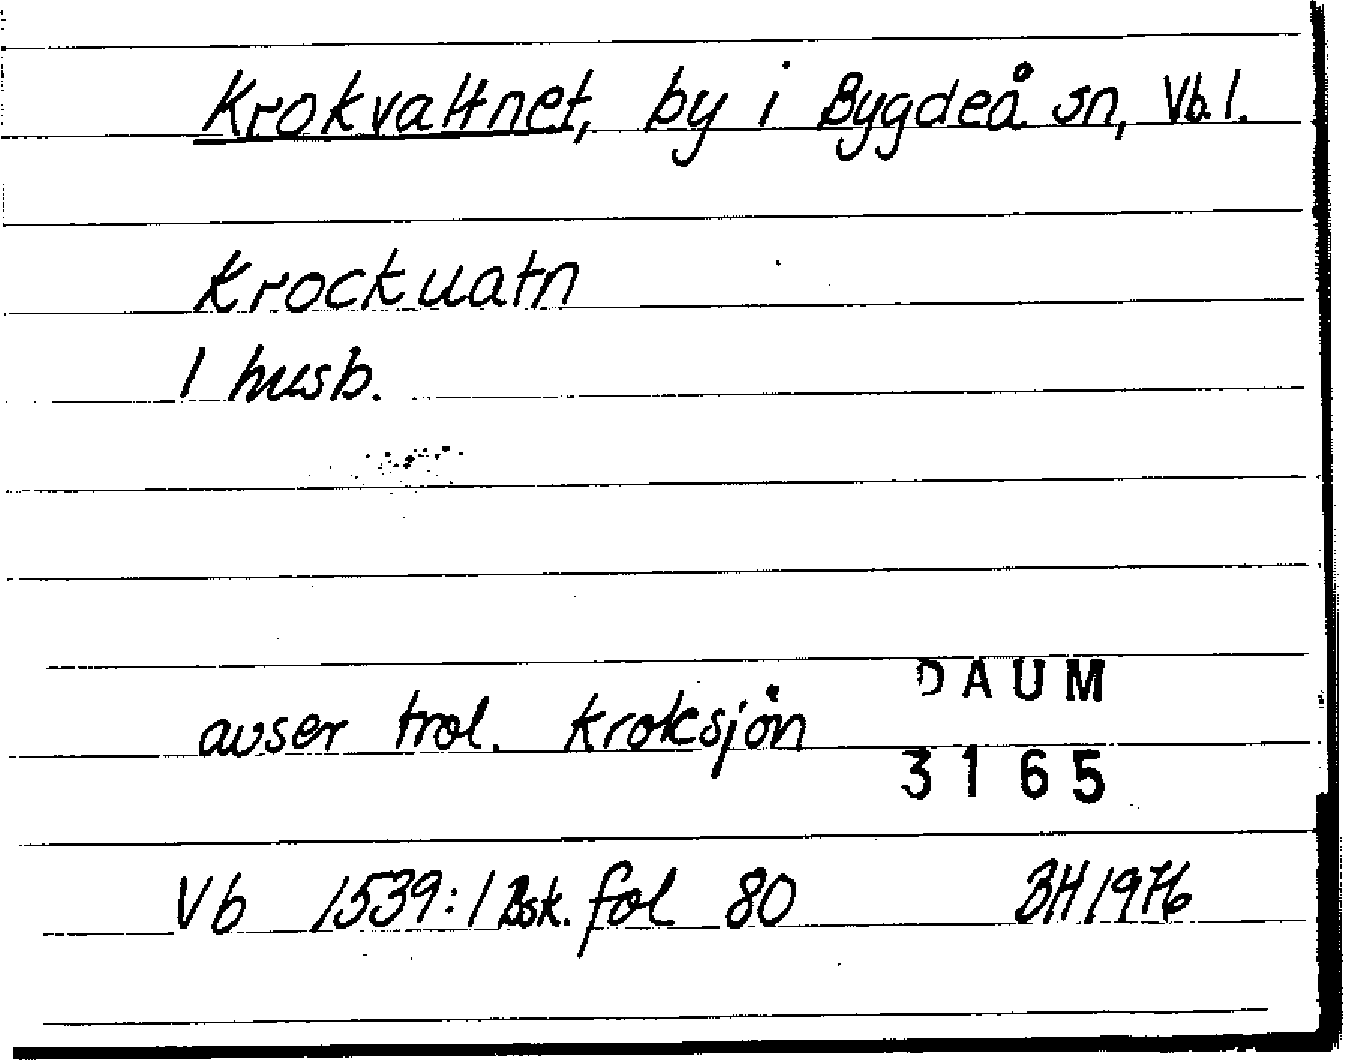 Krokvattnet, by i Bygdeå sn, Vb. l.
Krockuatn
1 husb.
DAUM
avser trol. Kroksjön
3165
Vb 1539:1 Bsk. fol 80 BH 1976